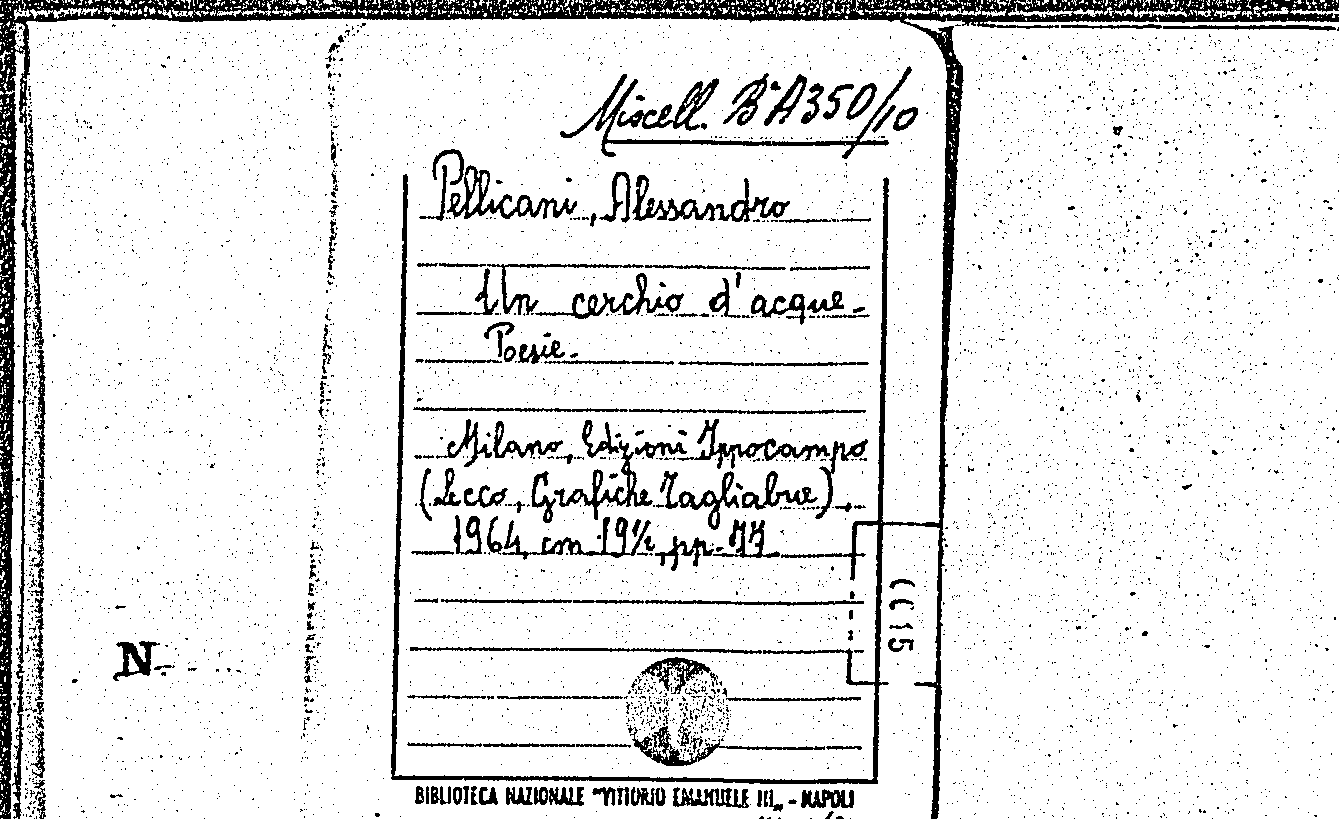 Miscell. B A 350/10
Pellicani, Alessandro
Un cerchio d'acque -
Poesie -
Milano, Edizioni Ippocampo
(Lecco, Grafiche Tagliabue),
1964, cm 19½, pp. 77
N
BIBLIOTECA NAZIONALE "VITTORIO EMANUELE III„ - NAPOLI